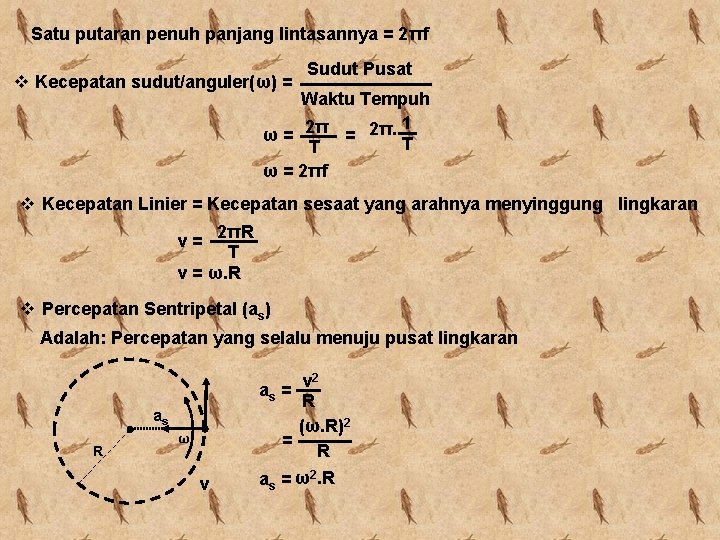 Satu putaran penuh panjang lintasannya = 2πf
❖ Kecepatan sudut/anguler(ω) = Sudut Pusat
Waktu Tempuh
ω = 2π/T = 2π. 1/T
ω = 2πf
❖ Kecepatan Linier = Kecepatan sesaat yang arahnya menyinggung lingkaran
v = 2πR/T
v = ω.R
❖ Percepatan Sentripetal (as)
Adalah: Percepatan yang selalu menuju pusat lingkaran
as = v²/R
= (ω.R)²/R
as = ω².R
as
ω
R
v